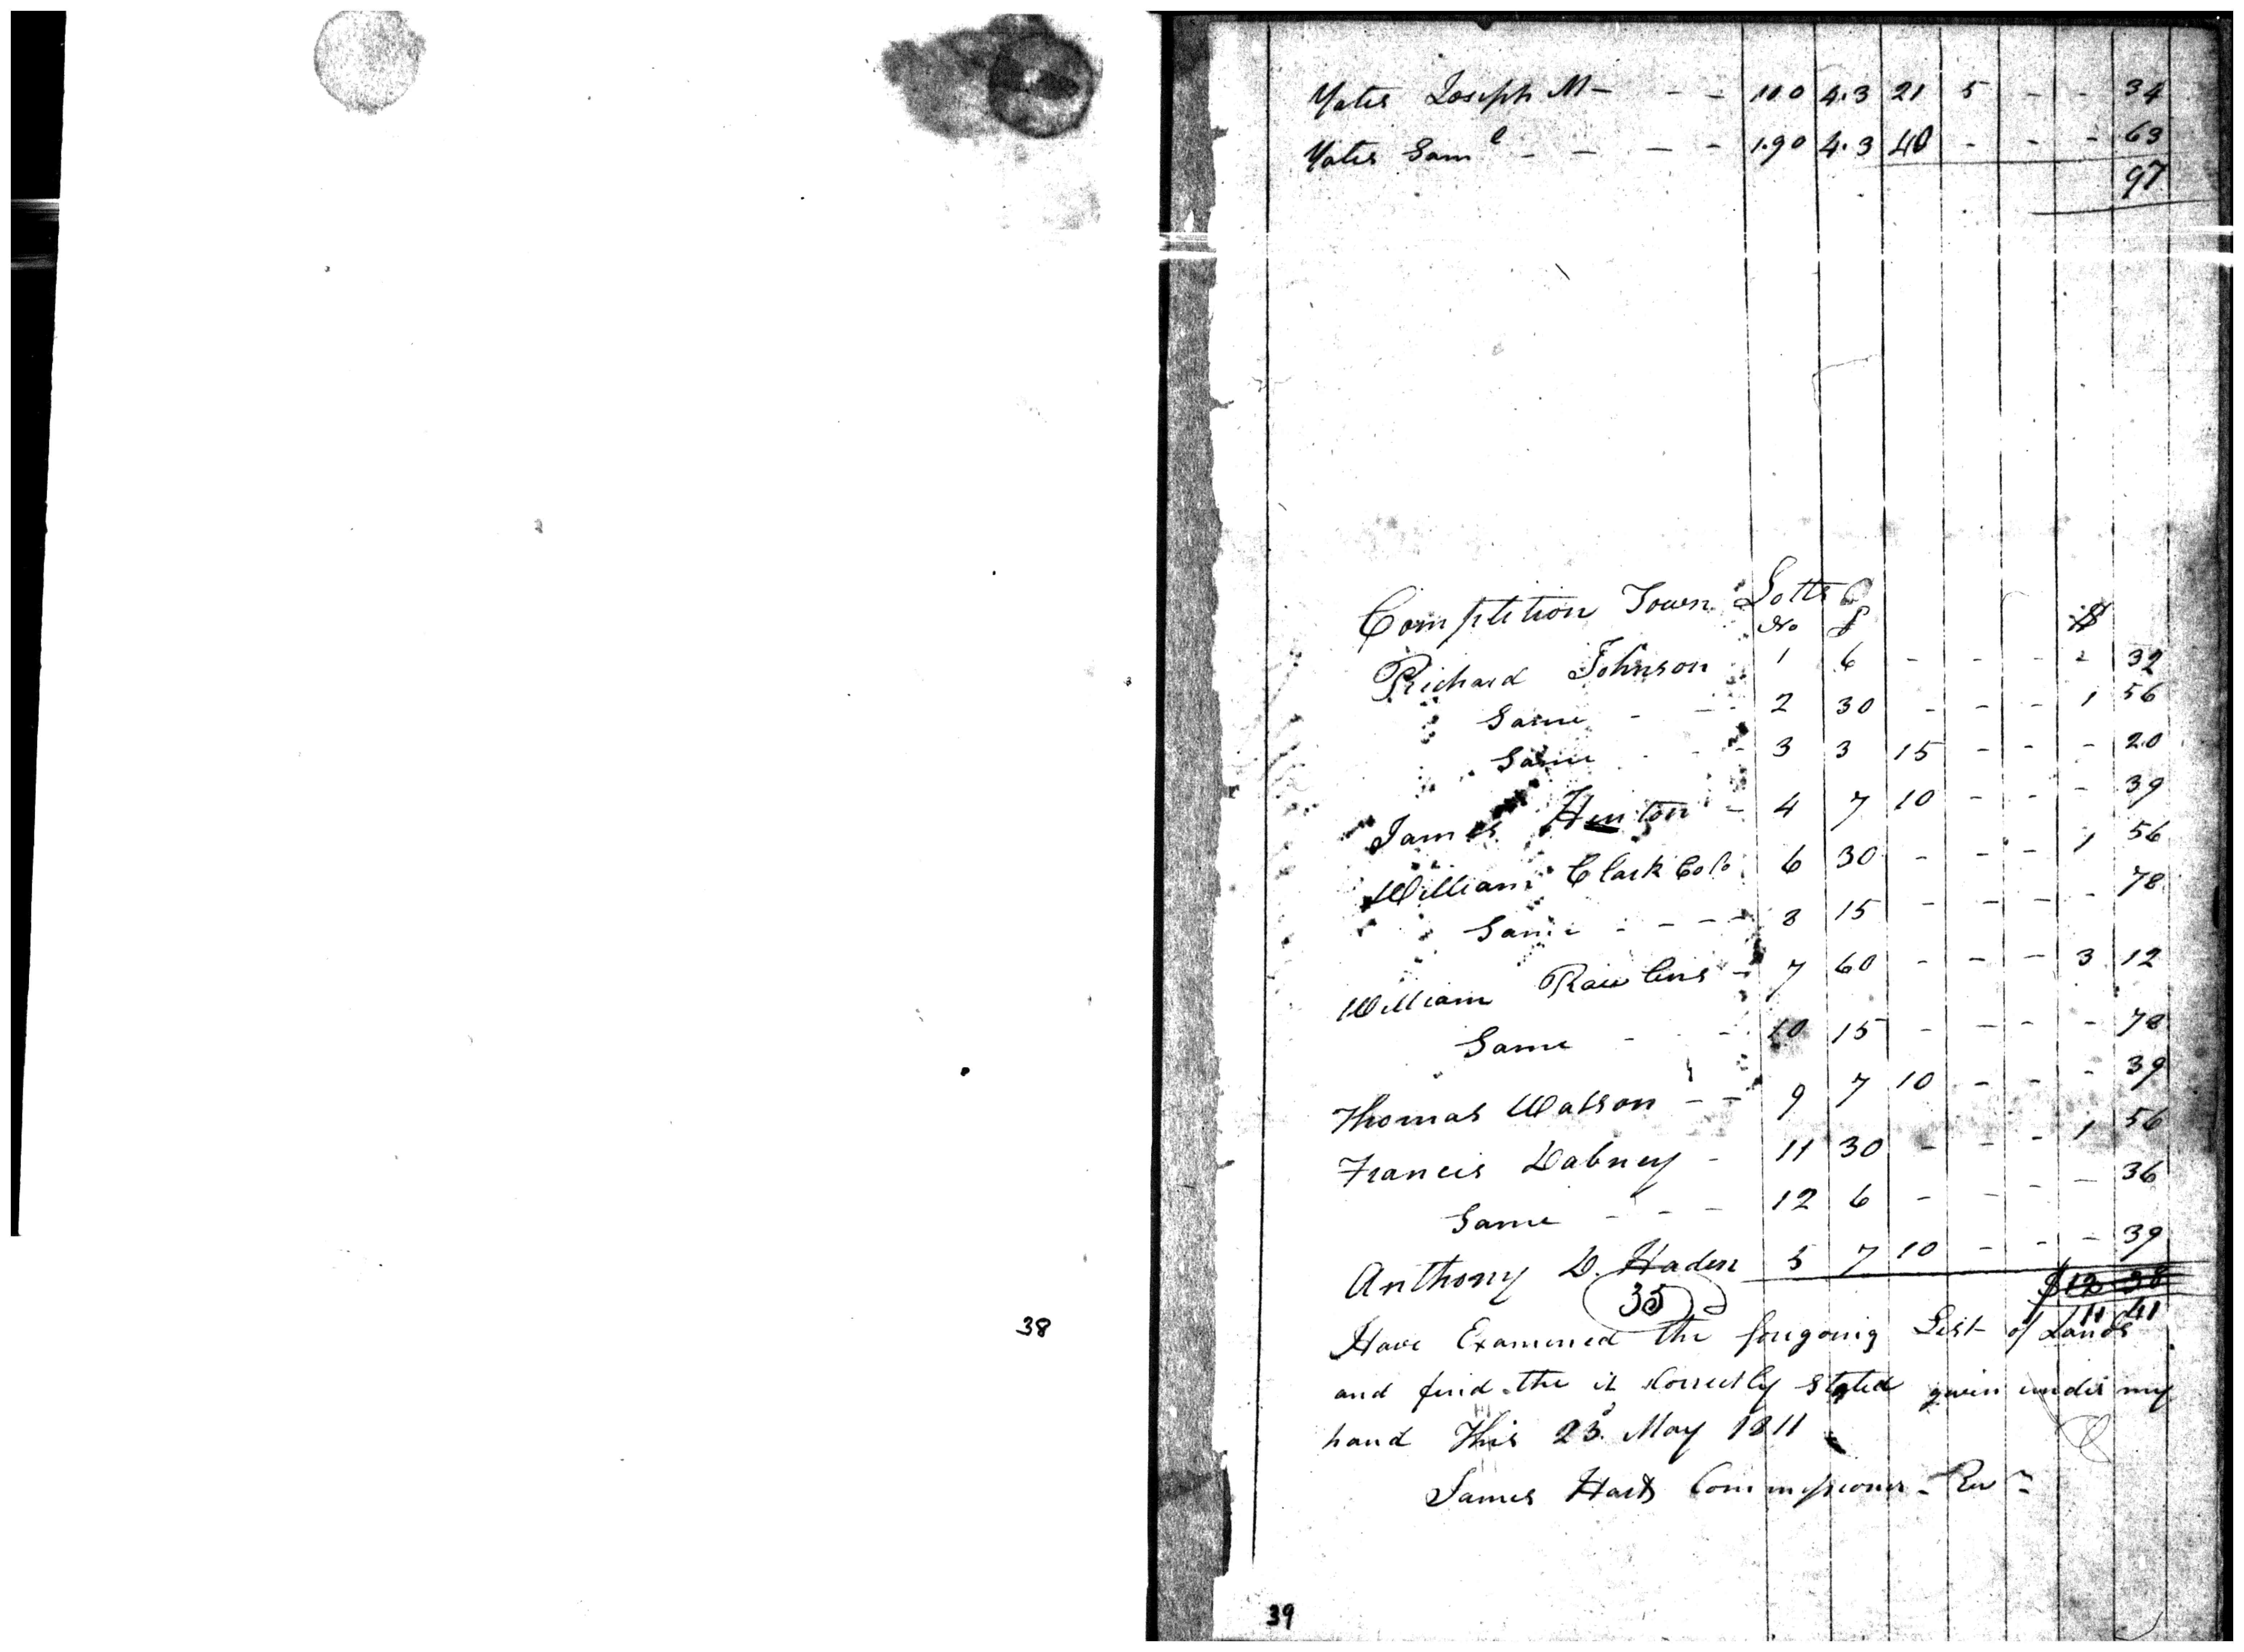 Yates Joseph M - - - 110 4.3 21 5 - - 34
Yates Sam l - - - - 190 4.3 40 - - - 63
97
Competition Town Lotts
No £ $
Richard Johnson 1 6 - - - - 32
Same - - 2 30 - - - 1 56
Same - - 3 3 15 - - - 20
James Hinton - 4 7 10 - - - 39
William Clark Colo 6 30 - - - 1 56
Same - - - - 8 15 - - - - 78
William Rawlins - 7 60 - - - 3 12
Same - - 10 15 - - - - 78
Thomas Watson - - 9 7 10 - - - 39
Francis Dabney - 11 30 - - - 1 56
Same - - - 12 6 - - - - 36
Anthony D. Haden 5 7 10 - - - 39
$12 38
11 41
35
Have Examined the forgoing List of Lands
and find the it Correctly Stated given under my
hand This 23d. May 1811
James Hart Commissioner - Revn
38
39